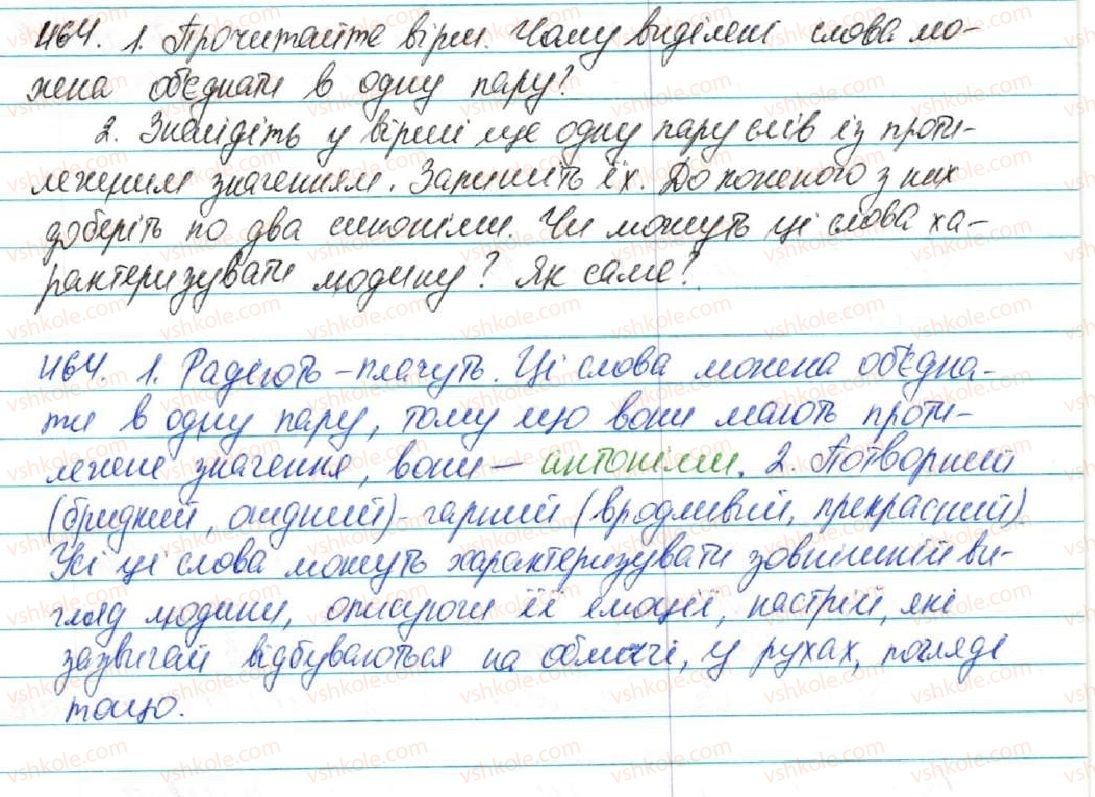 464. 1. Прочитайте вірш. Чому виділені слова мо-
жна об'єднати в одну пару?
2. Знайдіть у вірші ще одну пару слів із проти-
лежним значенням. Запишіть їх. До кожного з них
доберіть по два синоніми. Чи можуть ці слова ха-
рактеризувати людину? Як саме?
464. 1. Радіють – плачуть. Ці слова можна об'єдна-
ти в одну пару, тому що вони мають проти-
лежне значення, вони – антоніми. 2. Потворний
(бридкий, огидний) – гарний (вродливий, прекрасний).
Усі ці слова можуть характеризувати зовнішній ви-
гляд людини, описуючи її емоції, настрій, які
зазвичай відбуваються на обличчі, у рухах, погляді
тощо.